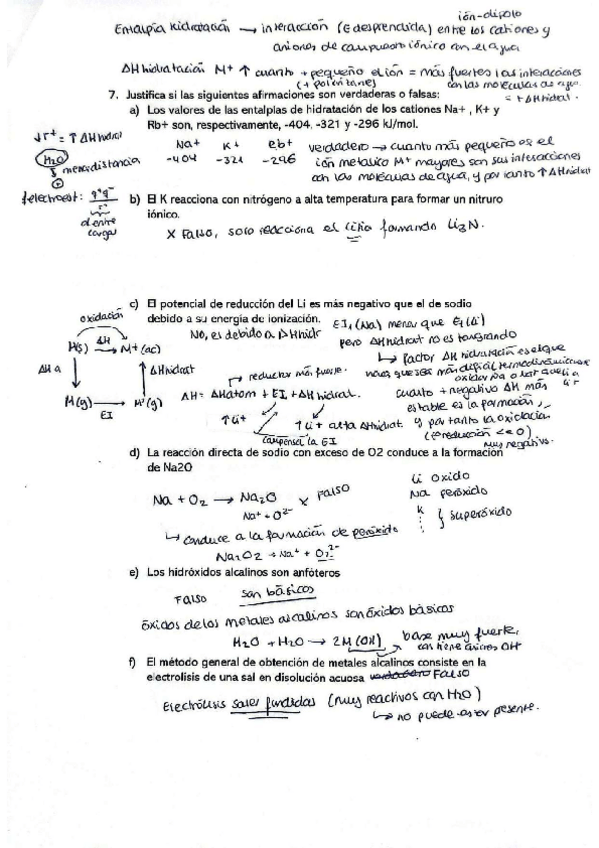 ión-dipolo
Entalpía hidratación → interacción (E desprendida) entre los cationes y
aniones de compuesto iónico con el agua
ΔHhidratación M+ ↑ cuanto + pequeño el ión = más fuertes las interacciones
(+ polarizantes) con las moléculas de agua.
= +ΔHhidrat.
7. Justifica si las siguientes afirmaciones son verdaderas o falsas:
a) Los valores de las entalpias de hidratación de los cationes Na+ , K+ y
Rb+ son, respectivamente, -404. -321 y -296 kJ/mol.
↓r+ = ↑ΔHhidrat
H2O
menor distancia
Na+ K+ Rb+
-404 -321 -296
verdadero → cuanto más pequeño es el
ión metálico M+ mayores son sus interacciones
con las moléculas de agua, y por tanto ↑ΔHhidrat
Felectroest:
d entre
cargas
b) El K reacciona con nitrógeno a alta temperatura para formar un nitruro
iónico.
X Falso, solo reacciona el litio formando Li3N.
c) El potencial de reducción del Li es más negativo que el de sodio
debido a su energía de ionización.
EI1(Na) menor que EI1(Li)
No, es debido a ΔHhidr
pero ΔHhidrat no es tan grande
oxidación
M(s) ΔH→ M+(ac)
ΔHa ↑ΔHhidrat
M(g) → M+(g)
EI
↳ factor ΔH hidratación es el que
reductor más fuerte.
ΔH = ΔHatom + EI1 + ΔHhidrat.
↑Li+ ↑Li+ alta ΔHhidrat
compensa la EI
cuanto + negativo ΔH más
estable es la formación,
y por tanto la oxidación
(Eºreducción <<0)
muy negativo.
d) La reacción directa de sodio con exceso de O2 conduce a la formación
de Na2O
Na + O2 → Na2O X Falso
Na+ + O2-
Li óxido
Na peróxido
K
superóxido
↳ conduce a la formación de peróxido
Na2O2 → Na+ + O2 2-
e) Los hidróxidos alcalinos son anfóteros
Falso son básicos
óxidos de los metales alcalinos son óxidos básicos
M2O + H2O → 2M(OH) base muy fuerte,
contiene aniones OH-
f) El método general de obtención de metales alcalinos consiste en la
electrolisis de una sal en disolución acuosa verdadero Falso
Electrólisis sales fundidas (muy reactivos con H2O)
↳ no puede estar presente.